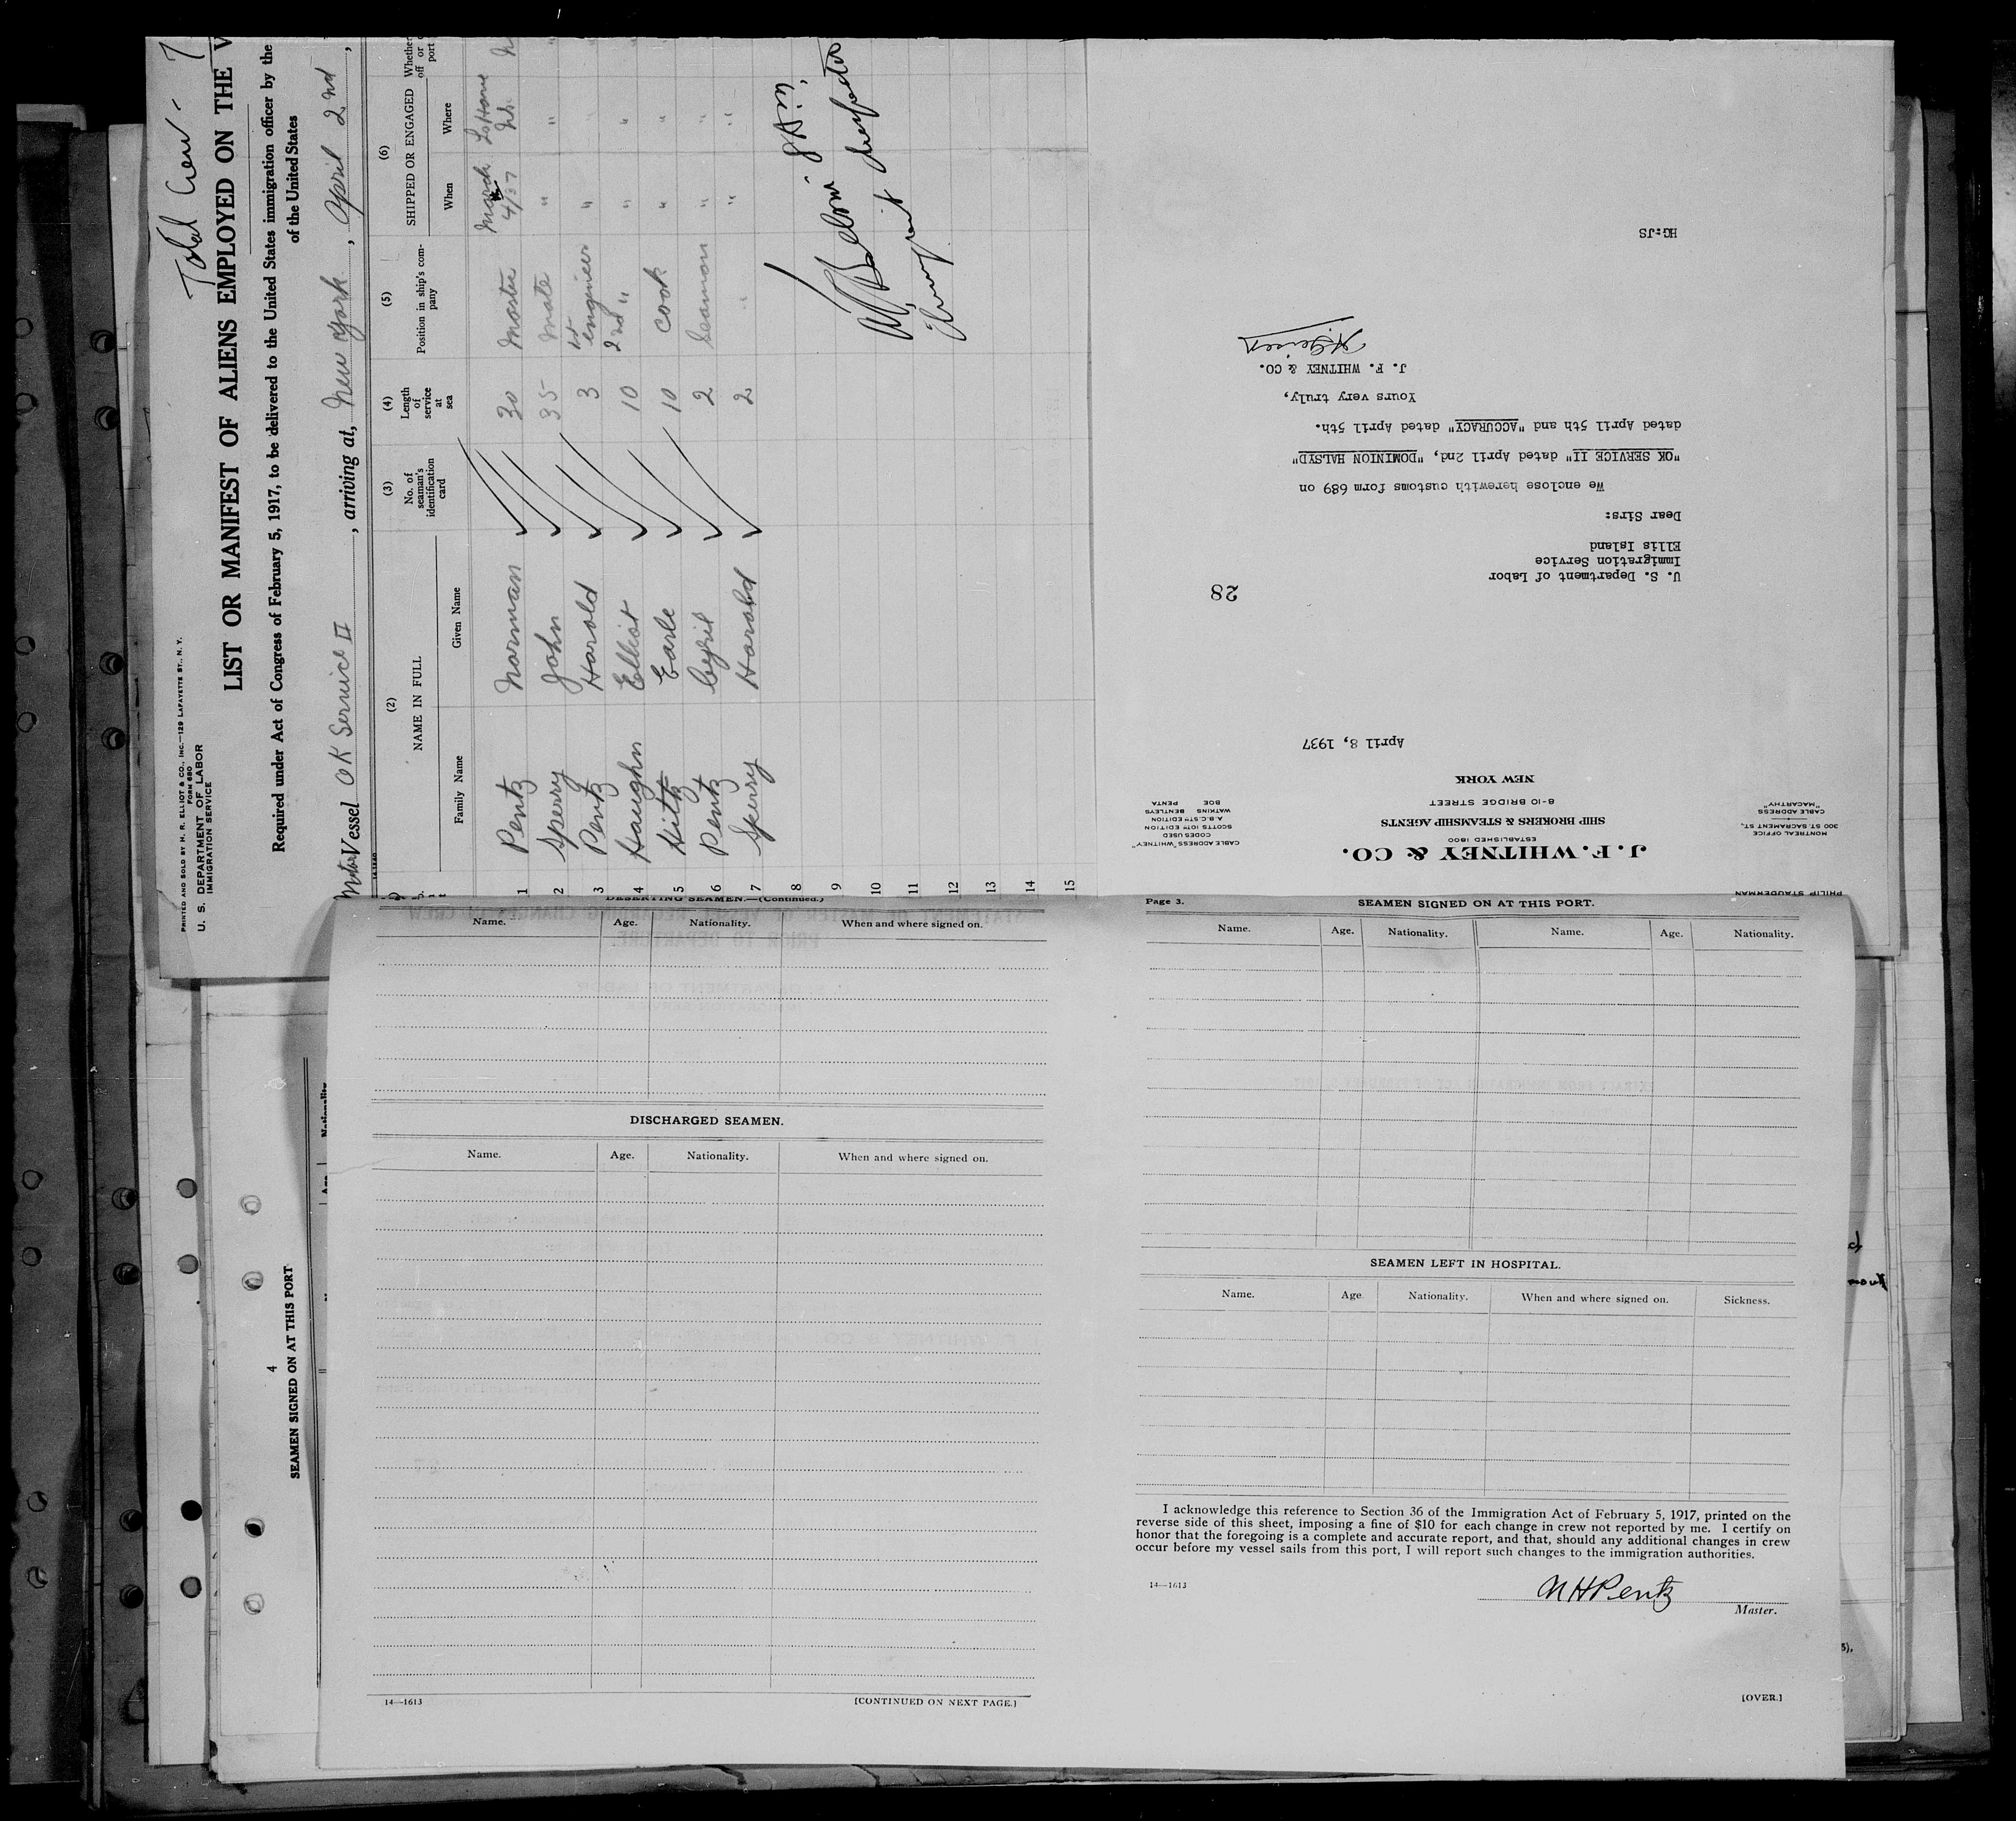 Total Crew - 7
PRINTED AND SOLD BY H. R. ELLIOT & CO., INC.—129 LAFAYETTE ST., N. Y.
FORM 680
U. S. DEPARTMENT OF LABOR
IMMIGRATION SERVICE
LIST OR MANIFEST OF ALIENS EMPLOYED ON THE V
Required under Act of Congress of February 5, 1917, to be delivered to the United States immigration officer by the
of the United States
Motor Vessel OK Service II, arriving at, New York, April 2nd,
(2) (3) (4) (5) (6)
NAME IN FULL No. of seaman's identification card Length of service at sea Position in ship's company SHIPPED OR ENGAGED Whether
Family Name Given Name When Where
1 Pentz Norman 30 Master March 4/37 NS.
2 Sperry John 35 Mate " "
3 Pentz Harold 3 1st engineer " "
4 Haughn Elliot 10 2nd " " "
5 Earle 10 Cook " "
6 Pentz Cyril 2 Seaman " "
7 Sperry Harold 2 " " "
8
9
10
11
12
13
14
15
PHILIP STAUDERMAN
J. F. WHITNEY & CO.
ESTABLISHED 1800
SHIP BROKERS & STEAMSHIP AGENTS
8-10 BRIDGE STREET
NEW YORK
MONTREAL OFFICE
300 ST. SACRAMENT ST.
CABLE ADDRESS
"MACARTHY"
CABLE ADDRESS "WHITNEY"
CODES USED
SCOTTS 10TH EDITION
A.B.C. 5TH EDITION
WATKINS BENTLEYS
BOE PENTA
April 8, 1937
28
U. S. Department of Labor
Immigration Service
Ellis Island
Dear Sirs:
We enclose herewith customs form 689 on
"OK SERVICE II" dated April 2nd, "DOMINION HALSYD"
dated April 5th and "ACCURACY" dated April 5th.
Yours very truly,
J. F. WHITNEY & CO.
HG:JS
DESERTING SEAMEN.—(Continued.)
Name. Age. Nationality. When and where signed on.
DISCHARGED SEAMEN.
Name. Age. Nationality. When and where signed on.
14—1613
[CONTINUED ON NEXT PAGE.]
Page 3.
SEAMEN SIGNED ON AT THIS PORT.
Name. Age. Nationality. Name. Age. Nationality.
SEAMEN LEFT IN HOSPITAL.
Name. Age. Nationality. When and where signed on. Sickness.
I acknowledge this reference to Section 36 of the Immigration Act of February 5, 1917, printed on the
reverse side of this sheet, imposing a fine of $10 for each change in crew not reported by me. I certify on
honor that the foregoing is a complete and accurate report, and that, should any additional changes in crew
occur before my vessel sails from this port, I will report such changes to the immigration authorities.
14—1613
N H Pentz
Master.
[OVER.]
4
SEAMEN SIGNED ON AT THIS PORT